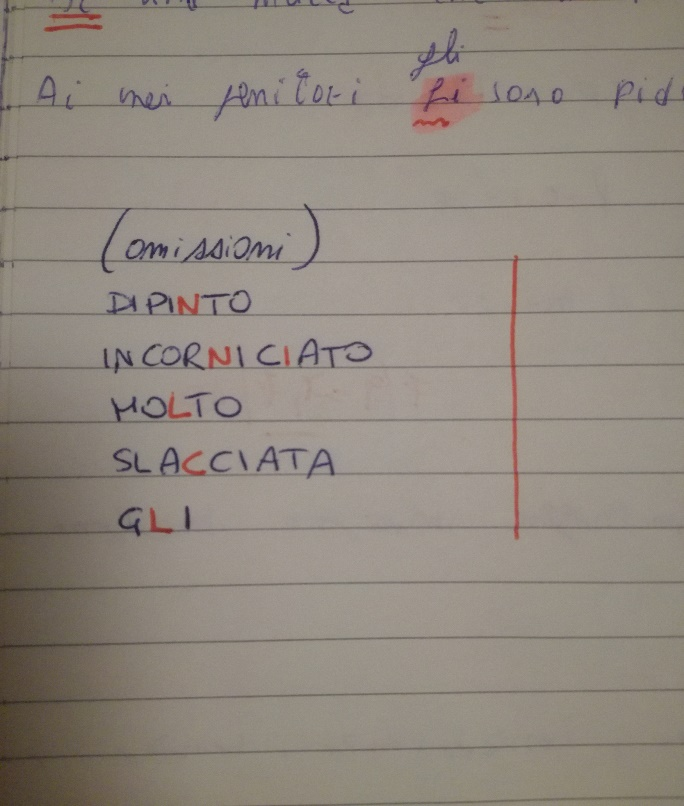 gli
Ai miei genitori gi sono
(omissioni)
DIPINTO
INCORNICIATO
MOLTO
SLACCIATA
GLI